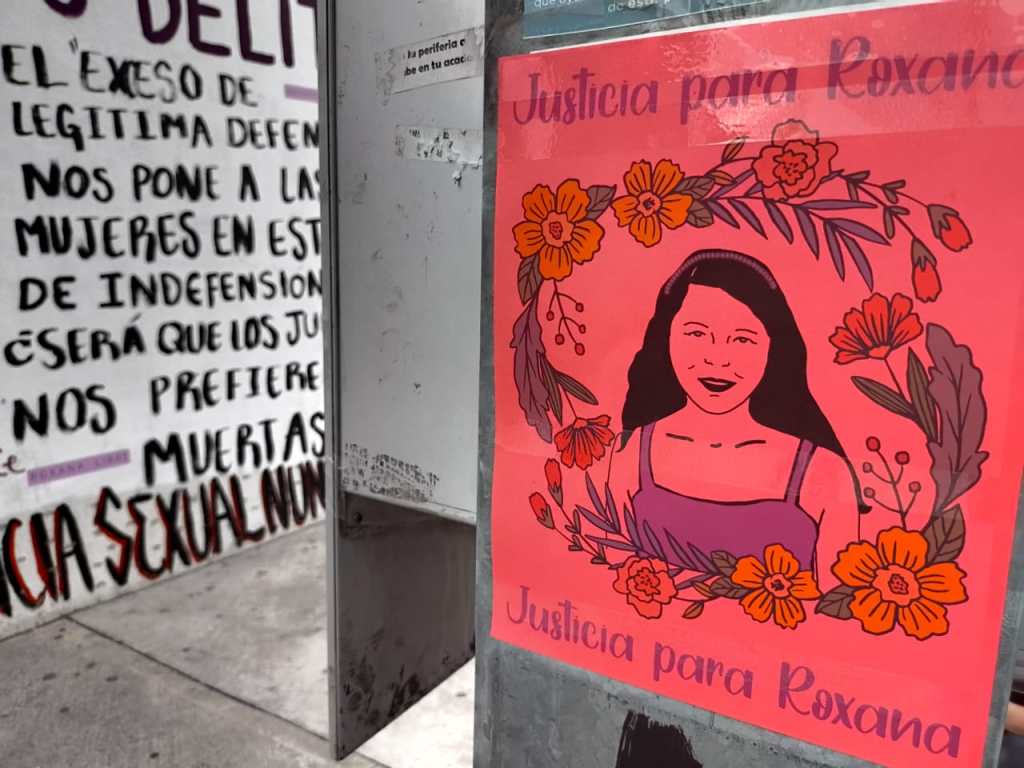 DELIT
EL "EXESO DE
LEGITIMA DEFEN
NOS PONE A LAS
MUJERES EN EST
DE INDEFENSION
¿SERÁ QUE LOS JU
NOS PREFIERE
MUERTAS
ROXANA LIBRE
CIA SEXUAL NUN
la periferia
be en tu acad
Justicia para Roxana
Justicia para Roxana